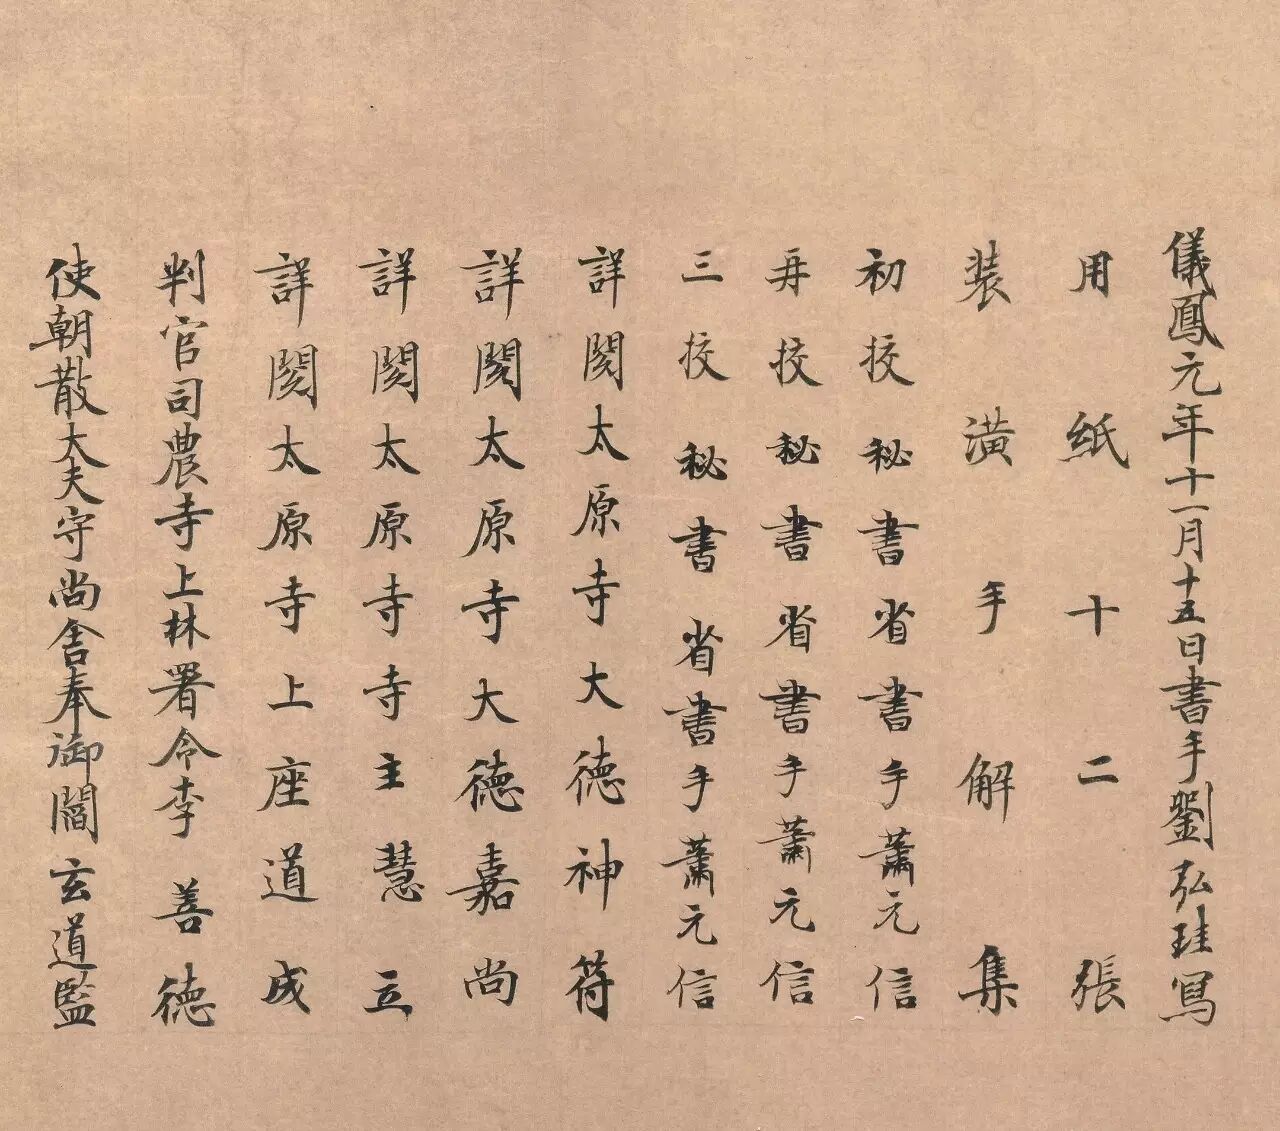 儀鳳元年十一月十五日書手劉弘珪寫
用紙十二張
装潢手解集
初挍秘書省書手蕭元信
再挍秘書省書手蕭元信
三挍秘書省書手蕭元信
詳閱太原寺大德神符
詳閱太原寺大德嘉尚
詳閱太原寺寺主慧立
詳閱太原寺上座道成
判官司農寺上林署令李善德
使朝散大夫守尚舍奉御閻玄道監